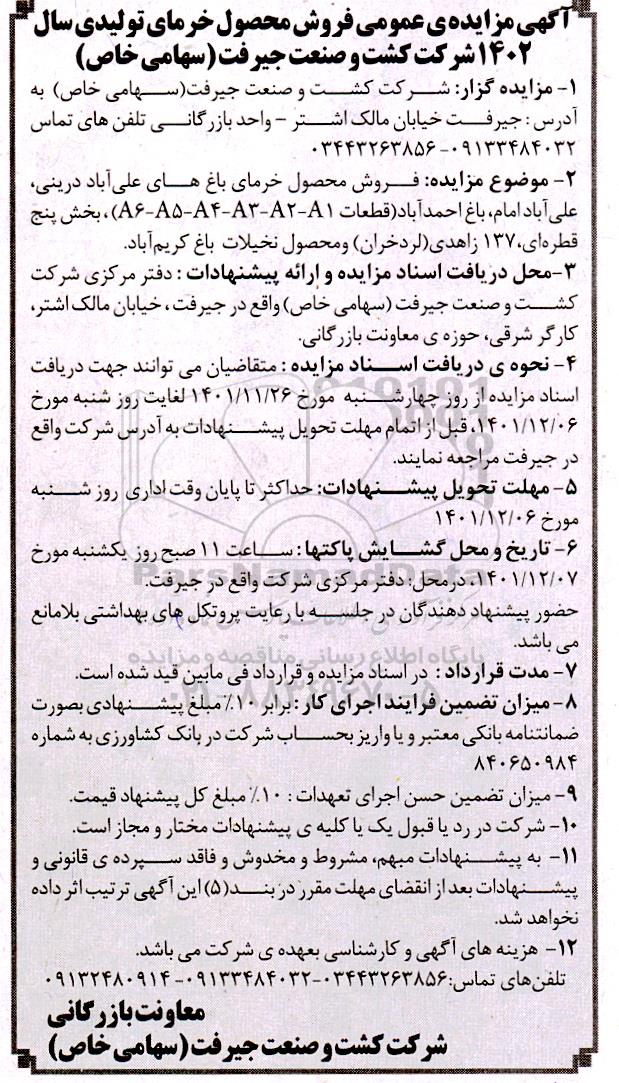 آگهی مزایده‌ی عمومی فروش محصول خرمای تولیدی سال
۱۴۰۲ شرکت کشت و صنعت جیرفت (سهامی خاص)
۱- مزایده گزار: شرکت کشت و صنعت جیرفت(سهامی خاص) به
آدرس : جیرفت خیابان مالک اشتر – واحد بازرگانی تلفن های تماس
۰۹۱۳۳۴۸۴۰۳۲- ۰۳۴۴۳۲۶۳۸۵۶
۲- موضوع مزایده: فروش محصول خرمای باغ های علی‌آباد درینی،
علی‌آباد امام، باغ احمدآباد(قطعات A۶-A۵-A۴-A۳-A۲-A۱)، بخش پنج
قطره‌ای،۱۳۷ زاهدی(لردخران) ومحصول نخیلات باغ کریم‌آباد.
۳-محل دریافت اسناد مزایده و ارائه پیشنهادات : دفتر مرکزی شرکت
کشت و صنعت جیرفت (سهامی خاص) واقع در جیرفت ، خیابان مالک اشتر،
کارگر شرقی، حوزه ی معاونت بازرگانی.
۴- نحوه ی دریافت اسناد مزایده : متقاضیان می توانند جهت دریافت
اسناد مزایده از روز چهارشنبه مورخ ۱۴۰۱/۱۱/۲۶ لغایت روز شنبه مورخ
۱۴۰۱/۱۲/۰۶، قبل از اتمام مهلت تحویل پیشنهادات به آدرس شرکت واقع
در جیرفت مراجعه نمایند.
۵- مهلت تحویل پیشنهادات: حداکثر تا پایان وقت اداری روز شنبه
مورخ ۱۴۰۱/۱۲/۰۶
۶- تاریخ و محل گشایش پاکتها : ساعت ۱۱ صبح روز یکشنبه مورخ
۱۴۰۱/۱۲/۰۷، در محل: دفتر مرکزی شرکت واقع در جیرفت.
حضور پیشنهاد دهندگان در جلسه با رعایت پروتکل های بهداشتی بلامانع
می باشد.
۷- مدت قرارداد : در اسناد مزایده و قرارداد فی مابین قید شده است.
۸- میزان تضمین فرایند اجرای کار : برابر ۱۰٪ مبلغ پیشنهادی بصورت
ضمانتنامه بانکی معتبر و یا واریز بحساب شرکت در بانک کشاورزی به شماره
۸۴۰۶۵۰۹۸۴
۹- میزان تضمین حسن اجرای تعهدات : ۱۰٪ مبلغ کل پیشنهاد قیمت.
۱۰- شرکت در رد یا قبول یک یا کلیه ی پیشنهادات مختار و مجاز است.
۱۱- به پیشنهادات مبهم، مشروط و مخدوش و فاقد سپرده ی قانونی و
پیشنهادات بعد از انقضای مهلت مقرر در بند(۵) این آگهی ترتیب اثر داده
نخواهد شد.
۱۲- هزینه های آگهی و کارشناسی بعهده ی شرکت می باشد.
تلفن‌های تماس:۰۳۴۴۳۲۶۳۸۵۶-۰۹۱۳۳۴۸۴۰۳۲- ۰۹۱۳۲۴۸۰۹۱۴
معاونت بازرگانی
شرکت کشت و صنعت جیرفت (سهامی خاص)
ParsNamadData
پایگاه اطلاع رسانی مناقصه و مزایده
۰۲۱-۸۸۳۴۹۶۷۰-۵